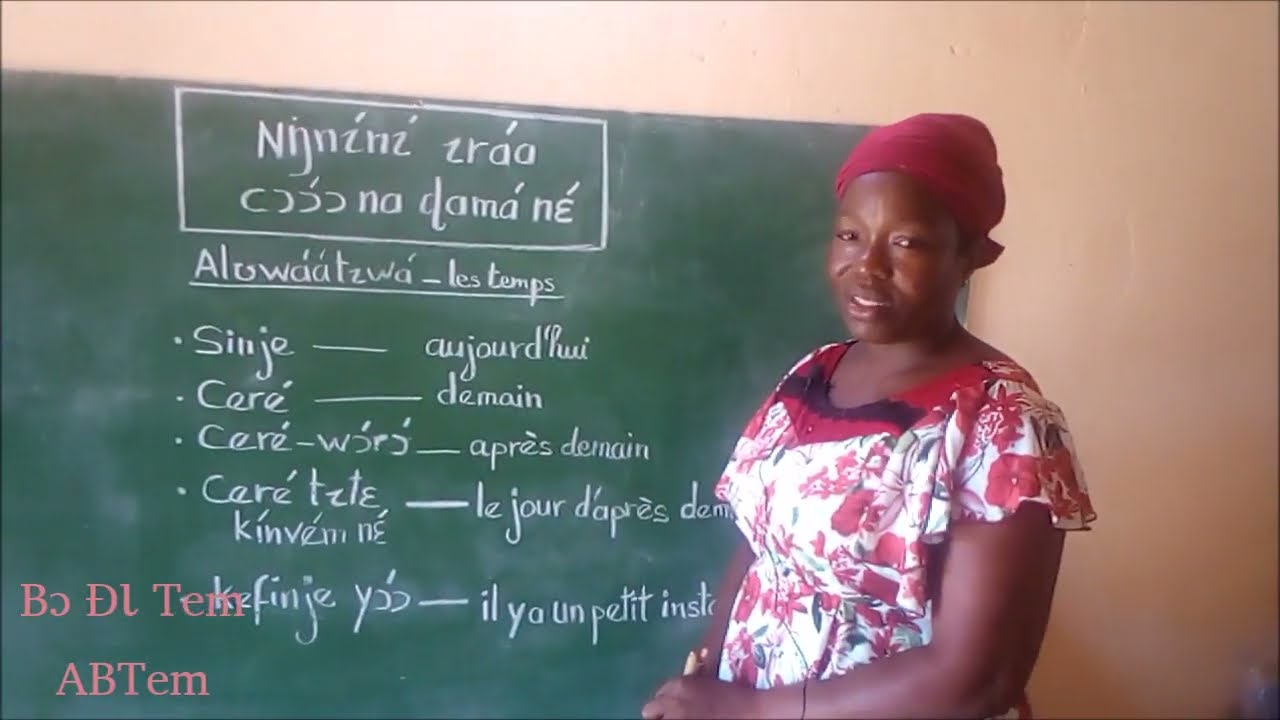 Nŋ́nɩ́nɩ́ ɩráa
cɔɔ́ɔ na ɖamá nɛ́
Alʊwáátɩwá – les temps
· Sinje — aujourd'hui
· Ceré — demain
· Ceré-wɔ́rɔ́ — après demain
· Ceré tɩtɛ — le jour d'après dem
kínvɛ́m nɛ́
· kefinje yɔ́ɔ — il y a un petit insta
Bɔ Ɖɩ Tem
ABTem